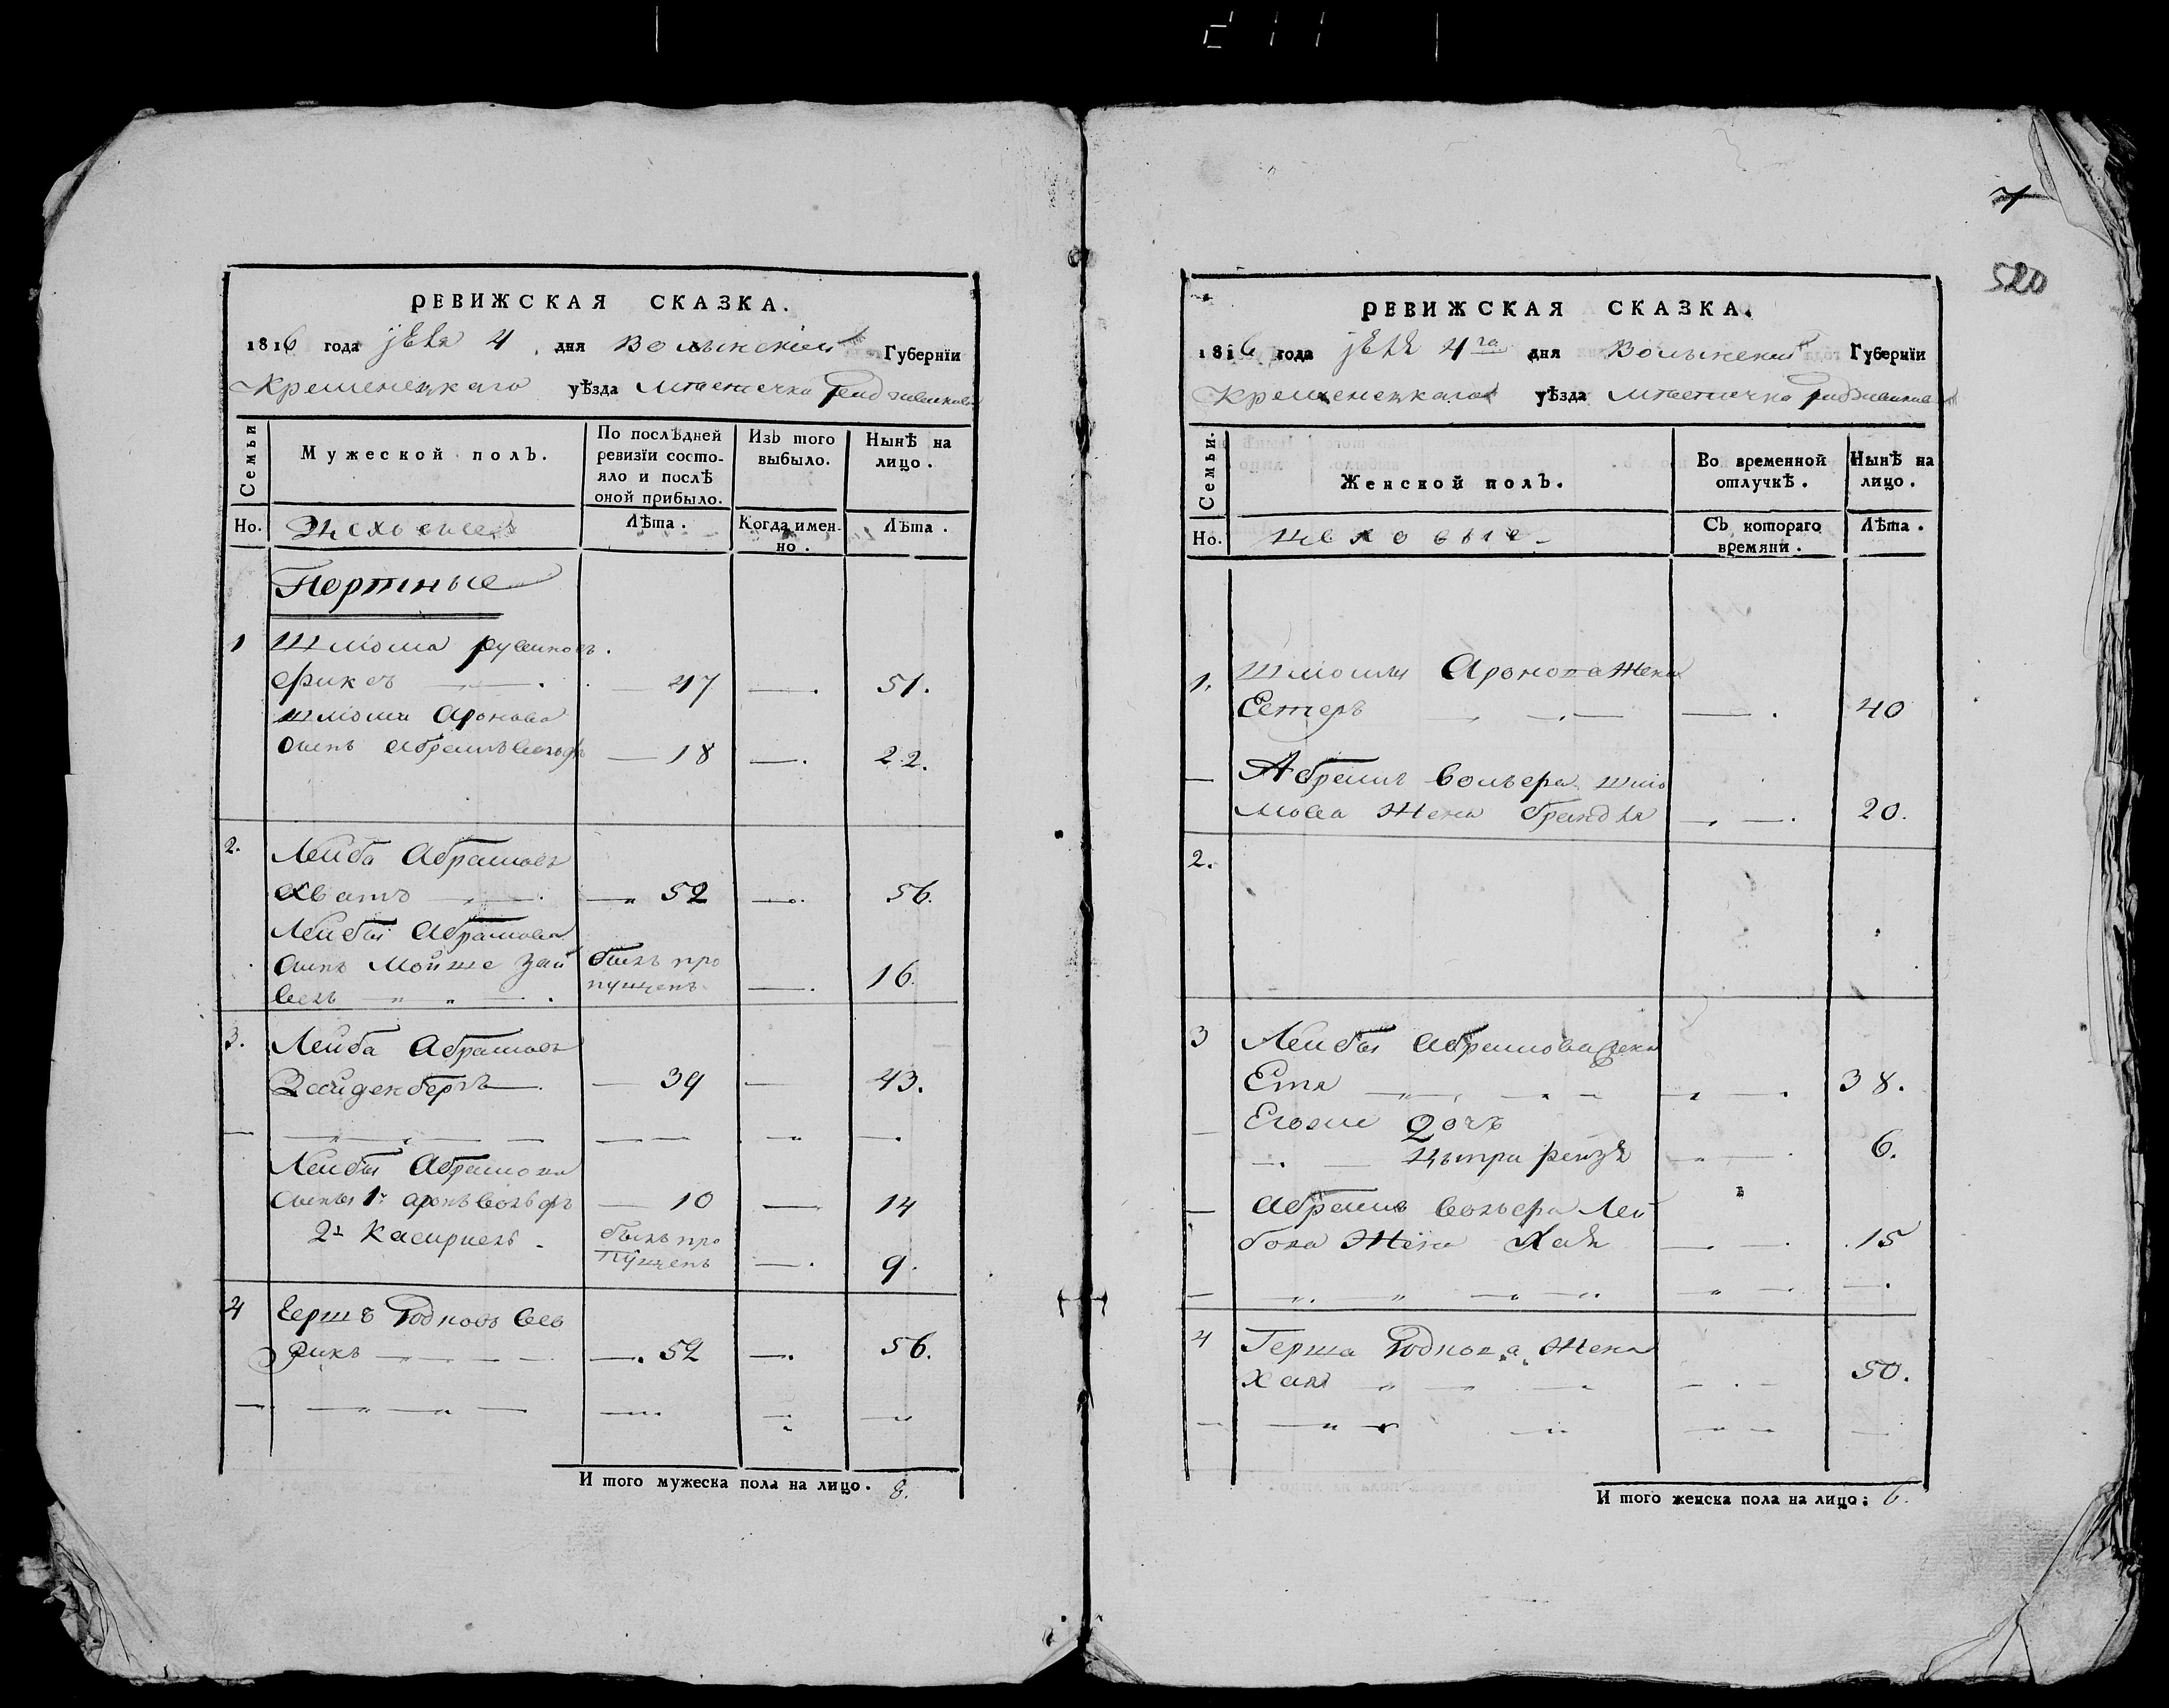 РЕВИЖСКАЯ СКАЗКА.
1816 года 4 дня Волынской Губернїи
Кременецкаго уѣзда Мѣстечка
Семьи
Мужеской полъ.
По послѣдней ревизїи состо-
яло и послѣ
оной прибыло.
Изъ того
выбыло.
Нынѣ на
лицо.
Но.
Лѣта.
Когда имен-
но.
Лѣта.
Портные
1 Шлiома
Фиксъ 47 51.
Шлiомы Аронова
сынъ Абрамъ Вольфъ 18 22.
2. Лейба Абрамовъ
Хватъ 52 56.
Лейбы Абрамова
сынъ Мойше Зай былъ про
велъ пущенъ 16.
3. Лейба Абрамовъ
Зайденберъ 39 43.
Лейбы Абрамова
сыны 1й Аронъ Вольфъ 10 14
2й Касириель былъ про
пущенъ 9.
4 Гершъ
52 56.
И того мужеска пола на лицо. 8.
7
520
РЕВИЖСКАЯ СКАЗКА.
1816 года 4го дня Волынской Губернїи
Кременецкаго уѣзда Мѣстечка
Семьи.
Женской полъ.
Во временной
отлучкѣ.
Нынѣ на
лицо.
Но.
цеховые
Съ котораго
времяни.
Лѣта.
1. Шлiомы Аронова жена
Естеръ 40
Абрамъ Вольфа Шлiо
мова жена Брандля 20.
2.
3 Лейбы Абрамова жена
Етя 38.
Егоже дочь
Цыпри Рейзя 6.
Абрамъ Вольфа Лей
бова жена Хая 15
4 Герша жена
Хая 50.
И того женска пола на лицо: 6.